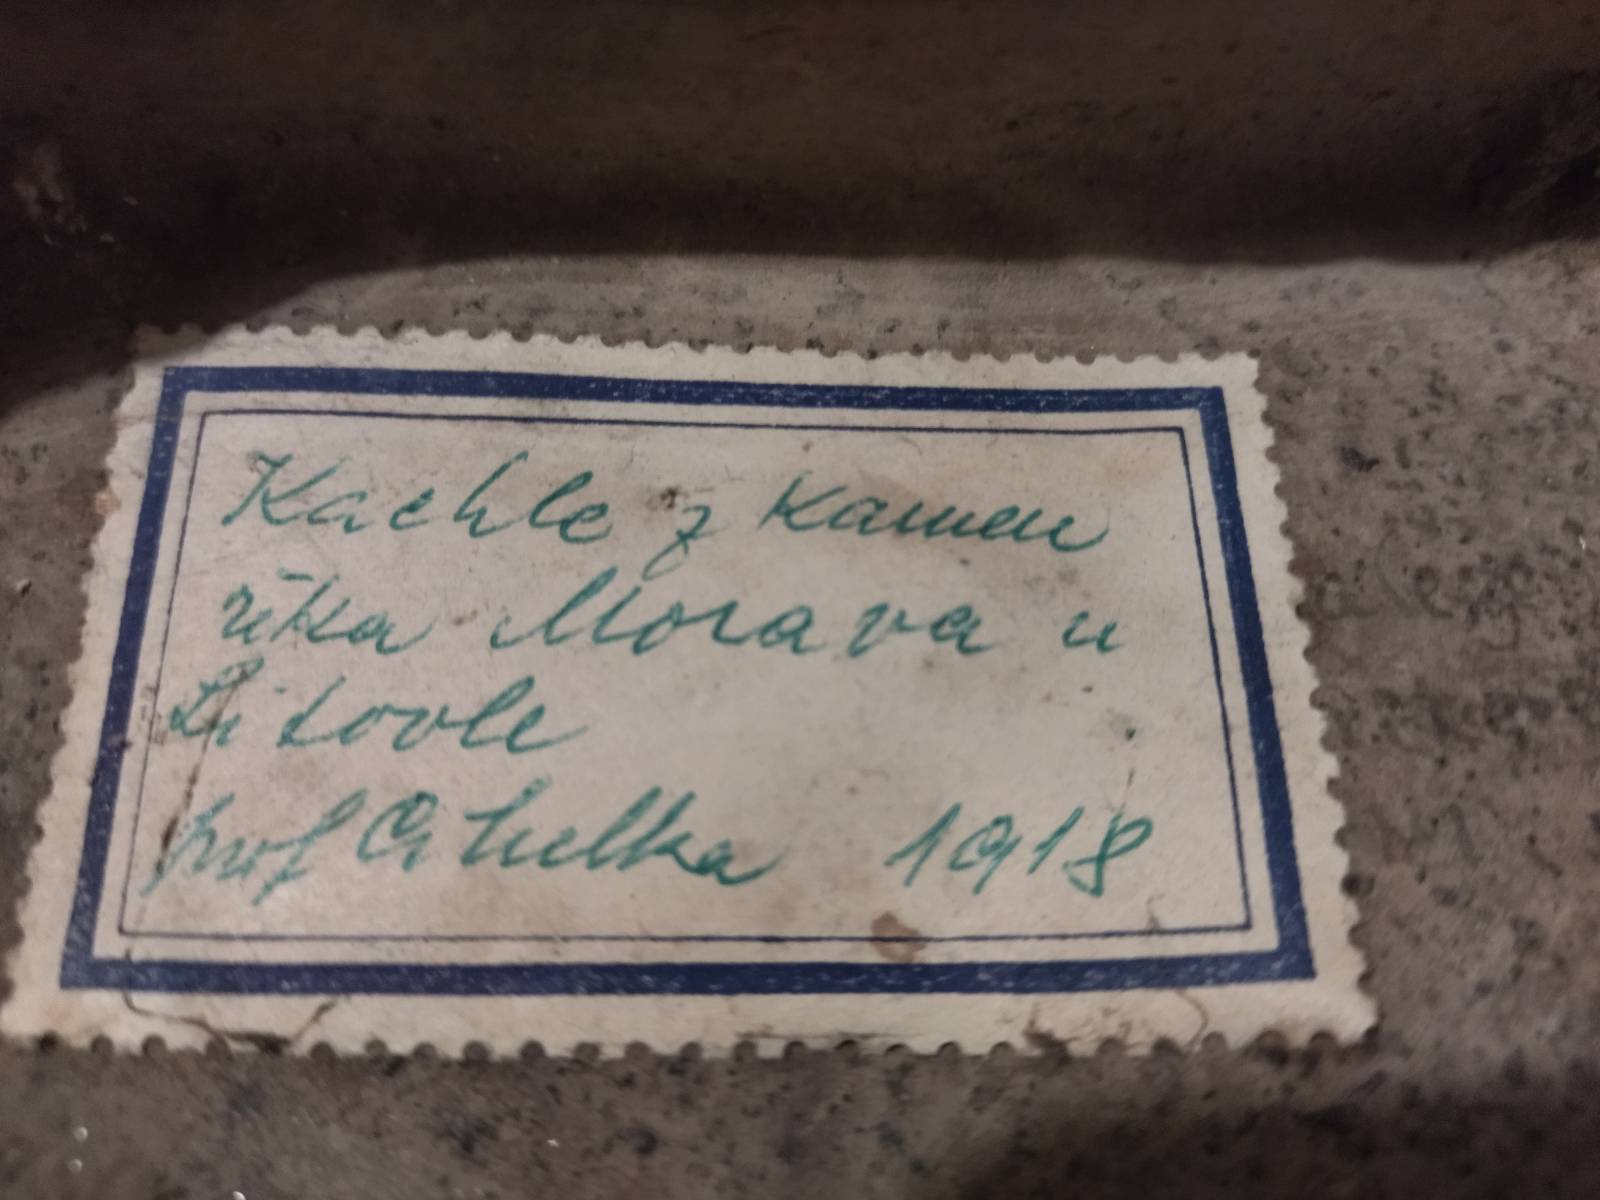 Kachle z kamen
řeka Morava u
Litovle
prof 1918